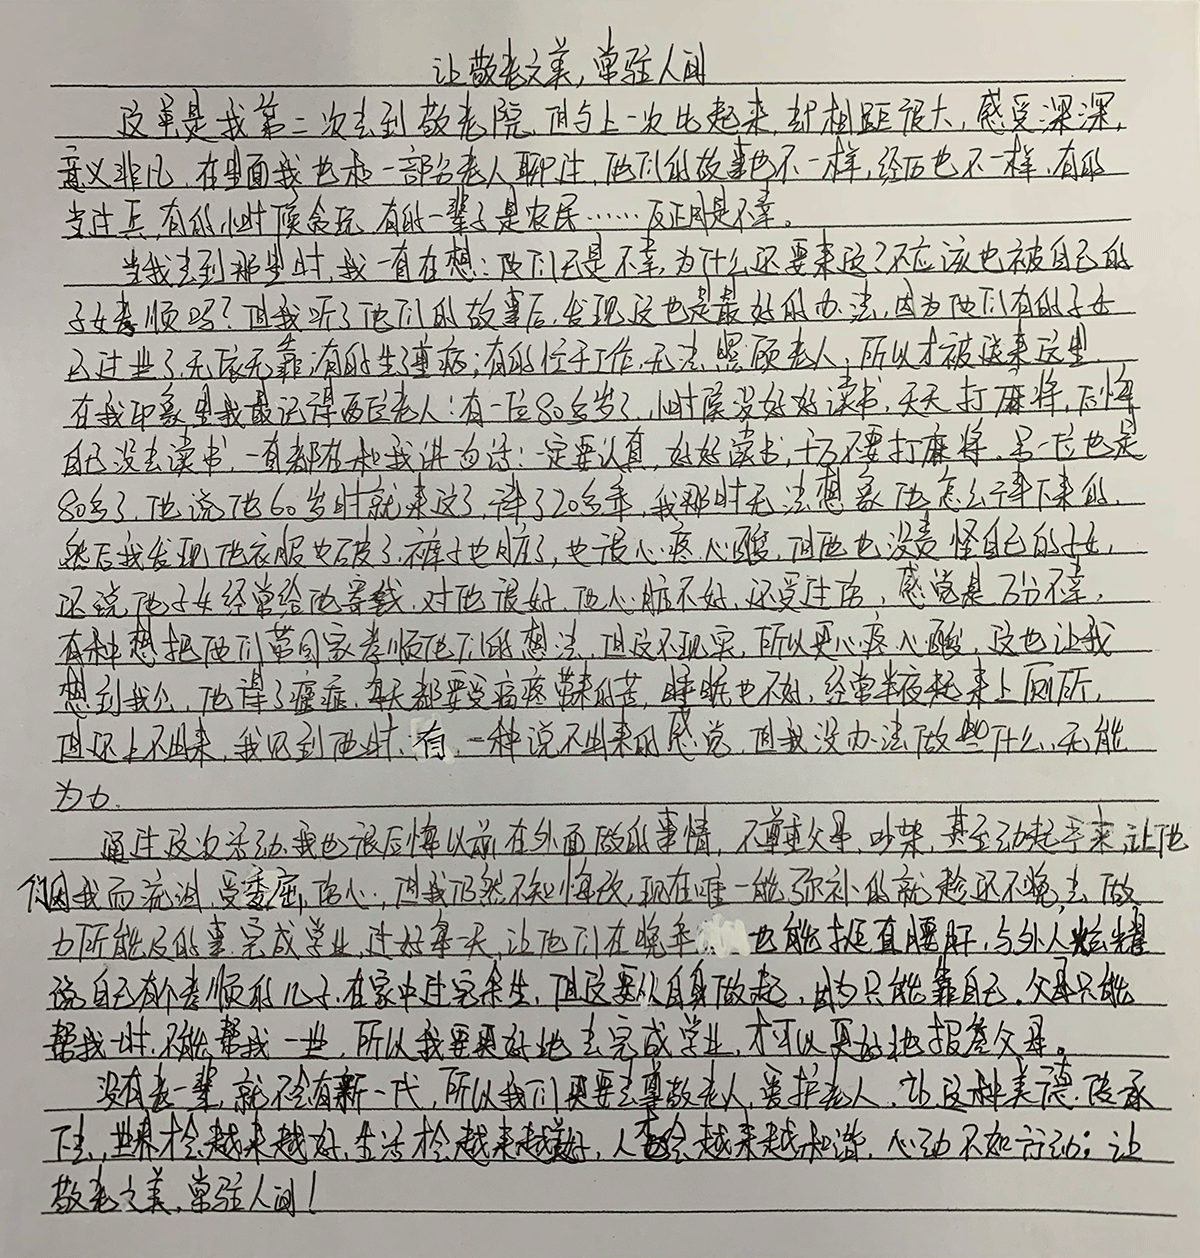 让敬老之美，常驻人间
这算是我第二次去到敬老院，但与上一次比起来，却相距很大，感受深深，
意义非凡，在里面我也和一部分老人聊过，他们的故事也不一样，经历也不一样，有的
当过兵，有的小时候贪玩，有的一辈子是农民……反正用是不幸。
当我去到那里时，我一直在想：他们无是不幸，为什么还要来这？不应该也被自己的
子女孝顺吗？但我听了他们的故事后，发现这也是最好的办法，因为他们有的子女
已过世了，无依无靠；有的生了重病；有的忙于工作，无法照顾老人，所以才被送来这里，
在我印象里我最记得两位老人：有一位80多岁了，小时候没好好读书，天天打麻将，后悔
自己没去读书，一直都在和我讲句话：一定要认真，好好读书，千万不要打麻将，另一位也是
80多了，他说他60岁时就来这了，待了20多年，我那时无法想象他怎么下来的，
然后我发现他衣服也破了，裤子也脏了，也很心疼，心酸，但他也没责怪自己的子女，
还说他子女经常给他寄钱，对他很好，他心脏不好，还受过伤，感觉是万分不幸，
有种想把他们带回家孝顺他们的想法，但这不现实，所以更心疼心酸，这也让我
想到我公，他得了癌症，每天都要受病疼带来的苦，睡眠也不好，经常半夜起来上厕所，
但还上不出来，我见到他时，有一种说不出来的感觉，但我没办法做些什么，无能
为力。
通过这次活动，我也很后悔以前在外面做的事情，不尊重父母，吵架，甚至动起手来，让他
们因我而流泪，受委屈，伤心，但我仍然不知悔改，现在唯一能弥补的就趁还不晚，去做
力所能及的事，完成学业，过好每一天，让他们在晚年也能挺直腰杆，与外人炫耀
说自己有个孝顺的儿子，在家中过完余生，但这要从自身做起，因为只能靠自己，父母只能
帮我一时，不能帮我一世，所以我要更好地去完成学业，才可以更好地报答父母。
没有老一辈，就不会有新一代，所以我们更要去尊敬老人，爱护老人，让这种美德，传承
下去，世界才会越来越好，生活才会越来越美好，人才会越来越和谐，心动不如行动；让
敬老之美，常驻人间！